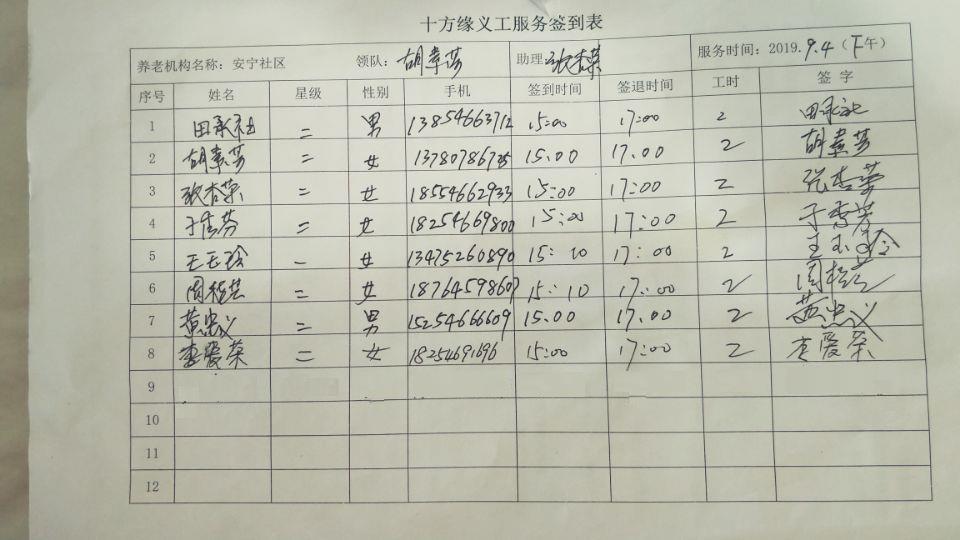 十方缘义工服务签到表
养老机构名称：安宁社区 领队：胡素芬 助理：张杏荣 服务时间：2019.9.4（下午）
序号 姓名 星级 性别 手机 签到时间 签退时间 工时 签字
1 田承社 二 男 13854663712 15:00 17:00 2 田承社
2 胡素芬 二 女 15:00 17:00 2 胡素芬
3 张杏荣 二 女 18554662933 15:00 17:00 2 张杏荣
4 二 女 18254669800 15:00 17:00 2
5 王玉玲 一 女 13475260890 15:10 17:00 2 王玉玲
6 周桂芸 二 女 18764598607 15:10 17:00 2 周桂芸
7 黄忠义 二 男 15254666609 15:00 17:00 2 黄忠义
8 李爱荣 二 女 18254691696 15:00 17:00 2 李爱荣
9
10
11
12